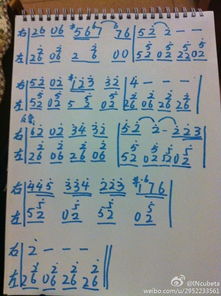 右 | 26 06 #567 76 | 52 2 - -
左 | 26 06 2 6 00 | 52 02 52 02
右 | 52 02 #123 32 | 4 - - -
左 | 52 02 5 5 02 | 26 06 26 26
右 | 62 02 34 32 | 52 2 - 223
左 | 26 06 26 06 | 52 02 52 02
右 | 445 334 223 176
左 | 52 02 52 02
右 | 2 - - -
左 | 26 06 26 26
@INcubets
weibo.com/u/2952233561